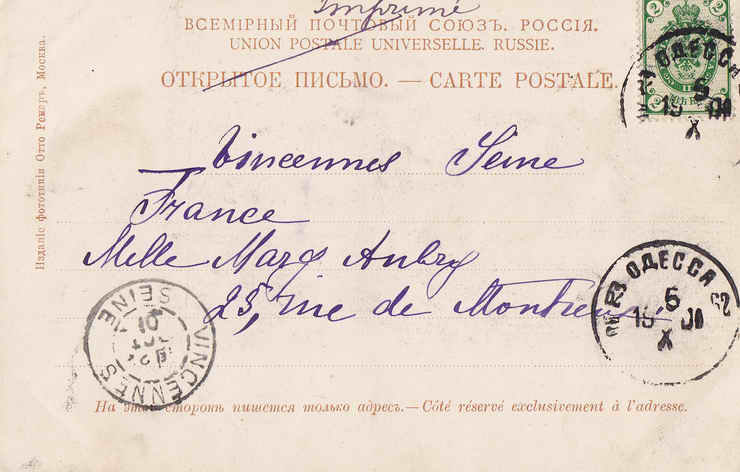 Imprimé
ВСЕМІРНЫЙ ПОЧТОВЫЙ СОЮЗЪ. РОССІЯ.
UNION POSTALE UNIVERSELLE. RUSSIE.
ОТКРЫТОЕ ПИСЬМО. — CARTE POSTALE.
2 2
ОДЕССА
5
19 01
X
Изданіе фототипіи Отто Ренаръ, Москва.
Vincennes Seine
France
Melle Marg Aubry
25, rue de Montreuil
ОДЕССА
5
19 01
X
VINCENNES
SEINE
01
На этой сторонѣ пишется только адресъ. — Côté réservé exclusivement à l'adresse.